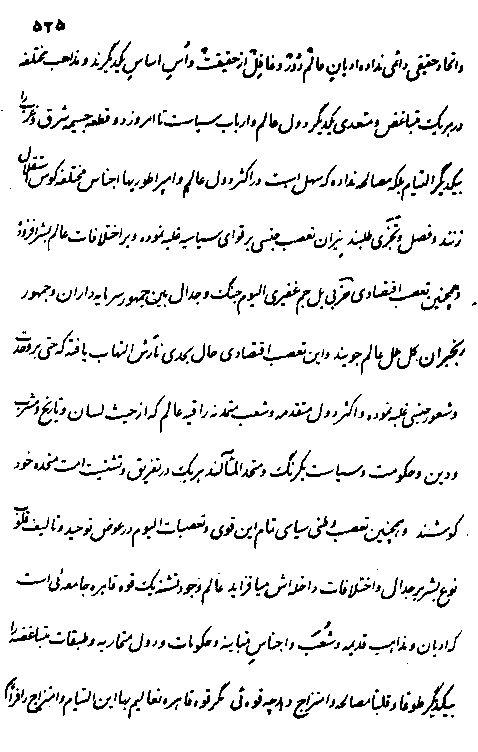 ۵۲۵
و اتحاد حقیقی دائمی نداده ادیان عالم دور و غافل از حقیقت و اُس اساس یکدیگرند و مذاهب مختلفه
در هر یک متباغض و متعدی یکدیگر دول عالم و ارباب سیاست تا امروز دو قطعه جسیمه شرق و غرب را
بیکدیگر التیام بلکه مصالحه نداده که سهل است در اکثر دول عالم و امپراطوریها اجناس مختلفه کوس استقلال
زنند و فصل و تجزی طلبند نیران تعصب جنسی بر قوای سیاسیه غلبه نموده و بر اختلافات عالم بشر افزوده
و همچنین تعصب اقتصادی حزبی بل جم غفیری الیوم جنگ و جدال بین جمهور سرمایه داران و جمهور
رنجبران کل ملل عالم جویند و این تعصب اقتصادی حال بحدی نارش التهاب یافته که حتی بر وحدت
و شعور جنسی غلبه نموده و اکثر دول متقدمه و شعب متمدنه راقیه عالم که از حیث لسان و تاریخ و مشرب
و دین و حکومت و سیاست یکرنگ و متحد المآلند هر یک در تفریق و تشتیت امت متحده خود
کوشند و همچنین تعصب وطنی سیاسی تمام این قوی و تعصبات الیوم در عوض توحید و تالیف قلوب
نوع بشر بر جدال و اختلافات داخله اش میافزاید عالم وجود تشنه یک قوه قاهره جامعه ئی است
که ادیان و مذاهب قدیمه و شعب و اجناس متباینه و حکومات و دول متحاربه و طبقات متباغضه را
بیکدیگر طوعا و قلبا مصالحه و امتزاج دهد چه قوه ئی مگر قوه قاهره تعالیم بها این التیام و امتزاج را فراهم